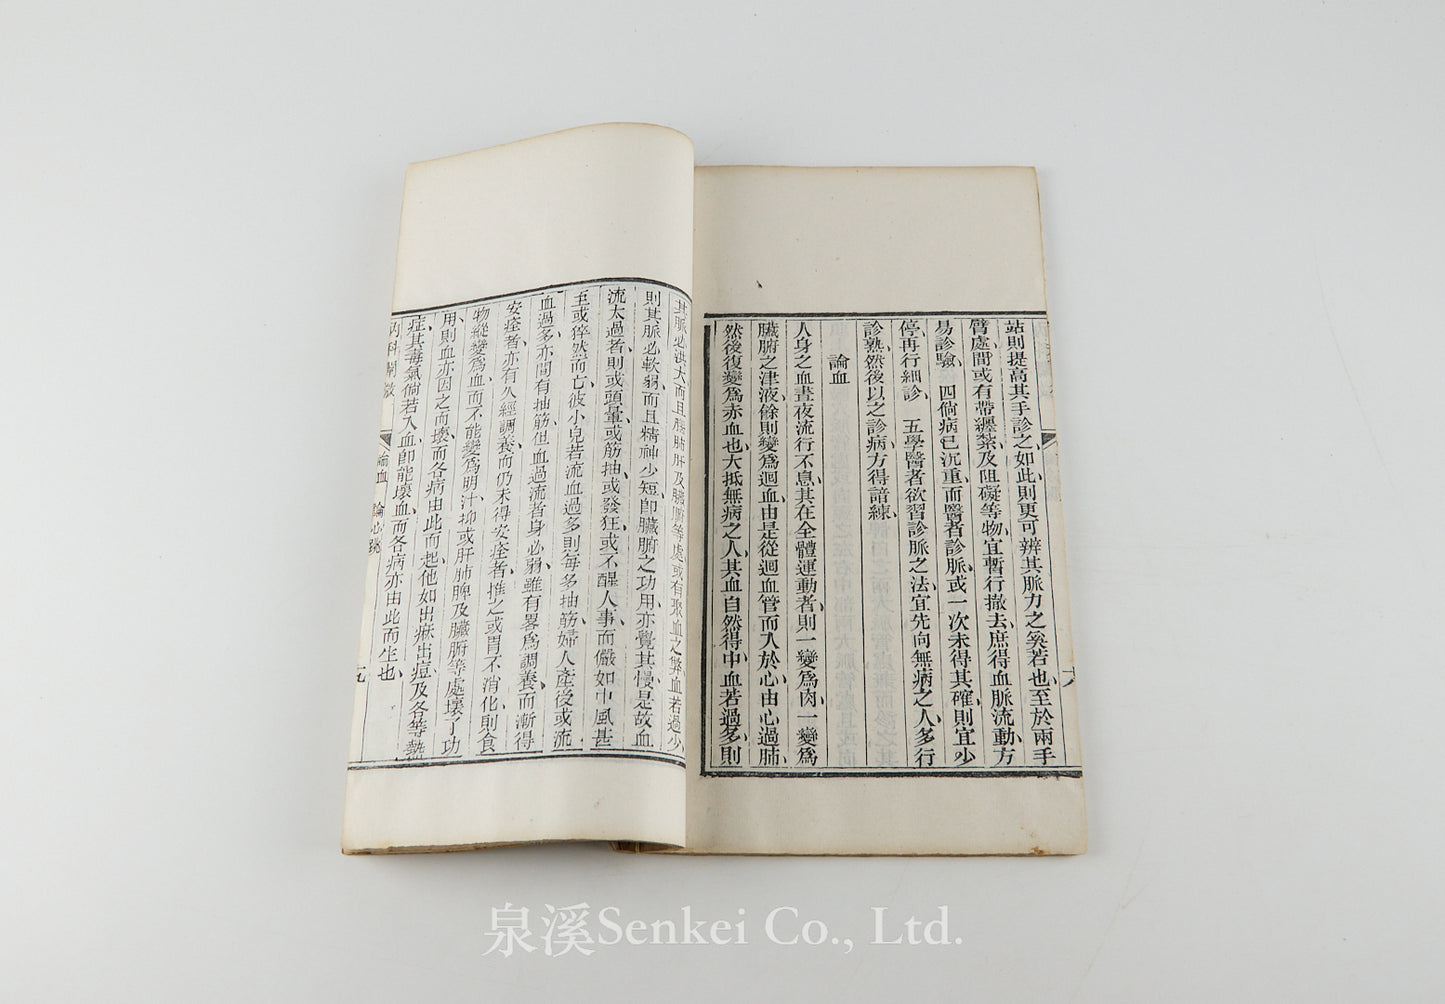 站則提高其手診之、如此、則更可辨其脈力之奚若也、至於兩手
臂處、間或有帶纏紮、及阻礙等物、宜暫行撤去、庶得血脈流動、方
易診驗、四倘病已沉重、而醫者診脈、或一次未得其確、則宜少
停、再行細診、五學醫者欲習診脈之法、宜先向無病之人、多行
診熟、然後以之診病、方得諳練、
論血
人身之血、晝夜流行不息、其在全體運動者、則一變爲肉、一變爲
臟腑之津液、餘則變爲迴血、由是從迴血管而入於心、由心過肺、
然後復變爲赤血也、大抵無病之人、其血自然得中、血若過多、則
其脈必洪大、而且腦肺肝及臟腑等處、或有聚血之弊、血若過少、
則其脈必軟弱、而且精神少短、卽臟腑之功用、亦覺其慢、是故血
流太過者、則或頭暈、或筋抽、或發狂、或不醒人事、而儼如中風、甚
至或猝然而亡、彼小兒若流血過多、則每多抽筋、婦人產後、或流
血過多、亦間有抽筋、但血過流者、身必弱、雖有畧爲調養、而漸得
安痊者、亦有久經調養、而仍未得安痊者、推之或胃不消化、則食
物縱變爲血、而不能變爲明汁、抑或肝肺脾及臟腑等處、壞了功
用、則血亦因之而壞、而各病由此而起、他如出瘶出痘、及各等熱
症、其毒氣倘若入血、卽能壞血、而各病亦由此而生也、
內科闡微
論血 論心跳
泉溪Senkei Co., Ltd.